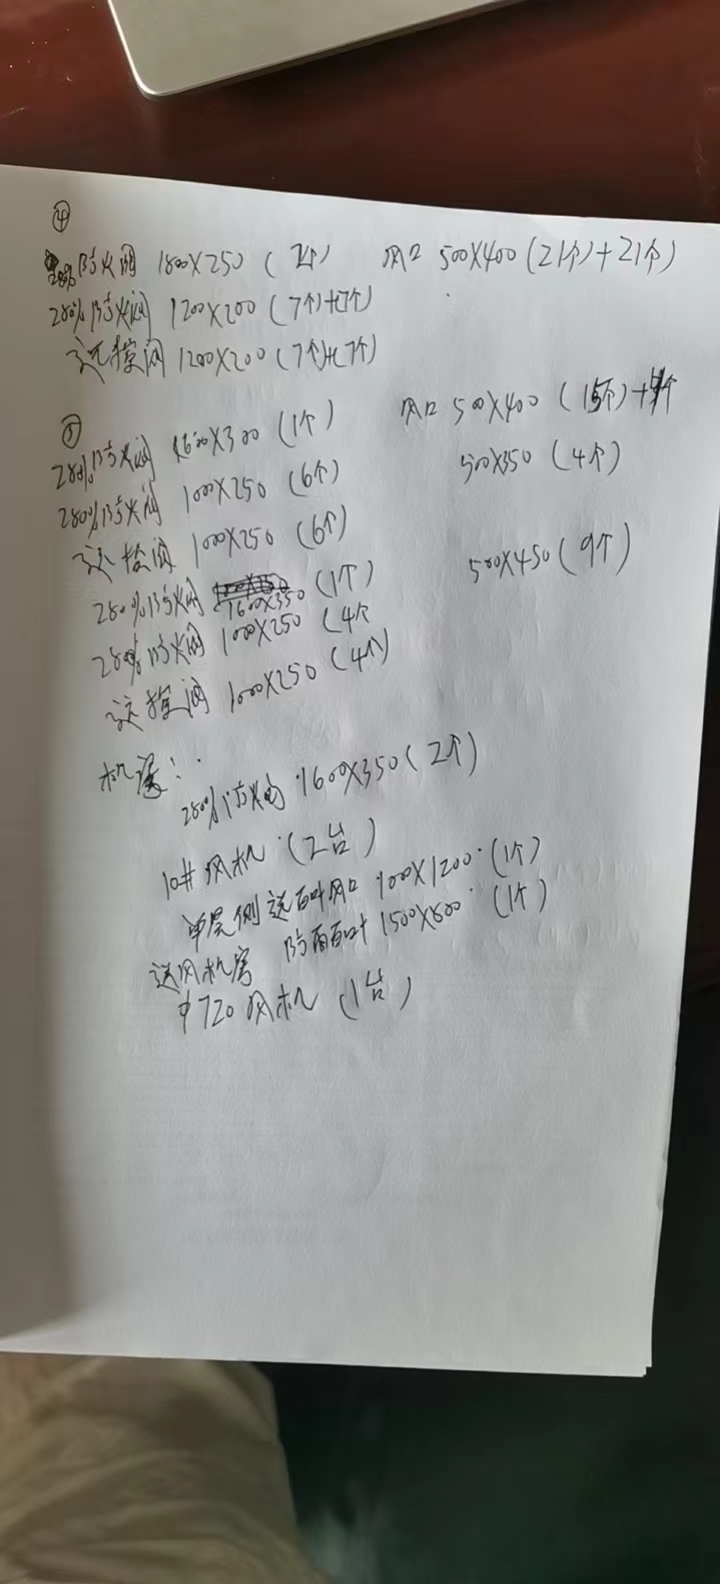 ④
280℃防火阀 1800X250 ( 2个) 风口 500X400 (21个)+21个)
280℃防火阀 1200X200 (7个)+7个)
远控阀 1200X200 (7个)+7个)
⑤
280℃防火阀 1600X300 (1个) 风口 500X400 (15个)+
280℃防火阀 1000X250 (6个) 500X350 (4个)
远控阀 1000X250 (6个)
280℃防火阀 1600X350 (1个) 500X450 (9个)
280℃防火阀 1000X250 (4个
远控阀 1000X250 (4个)
机房:
280℃防火阀 1600X350 (2个)
10# 风机 (2台)
单层侧送百叶风口 1000X1200 (1个)
送风机房 防雨百叶 1500X800 (1个)
φ720风机 (1台)